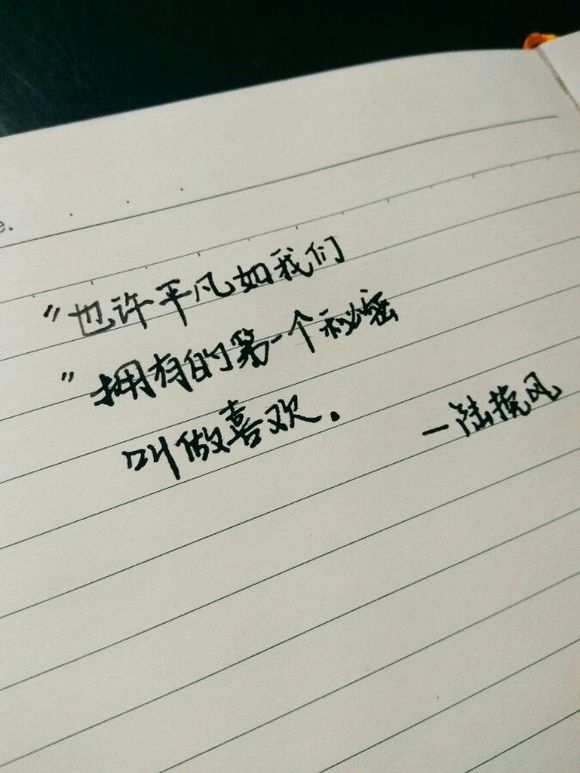 e.
"也许平凡如我们
"拥有的第一个秘密
叫做喜欢。
—陆挽风